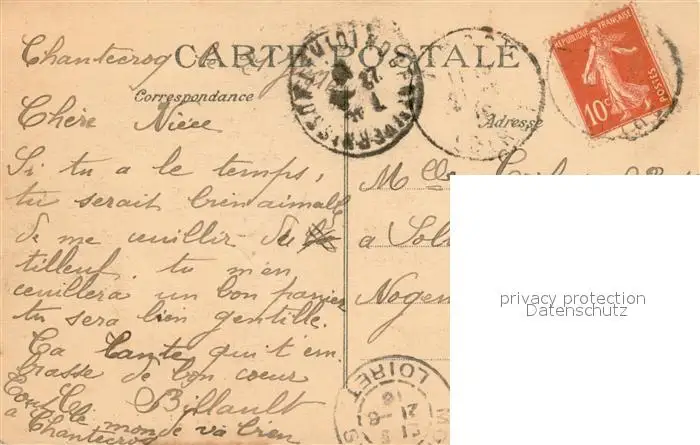 CARTE POSTALE
Chantecroq le
Correspondance
Adresse
RÉPUBLIQUE FRANÇAISE
10c
POSTES
Chère Nièce
Si tu a le temps,
tu serait bien aimable
de me ceuillir du
tilleuf. tu m'en
ceuillera un bon panier
tu sera bien gentille.
Ta Tante qui t'em
brasse de bon coeur
C. Billault
Tout le monde va bien
a Chantecroq
Mlle
a Sol
Nogen
LOIRET
privacy protection
Datenschutz